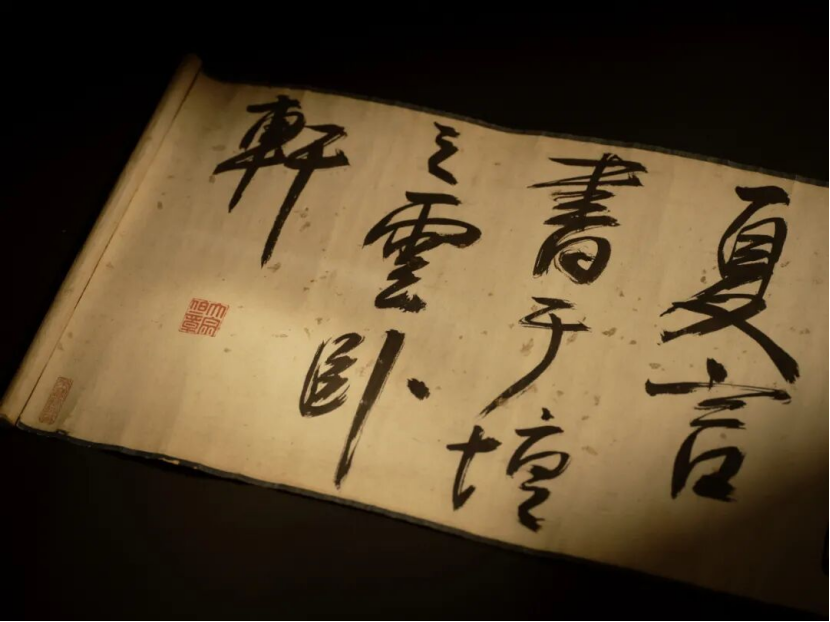 夏言
書于壇
之雲卧
軒